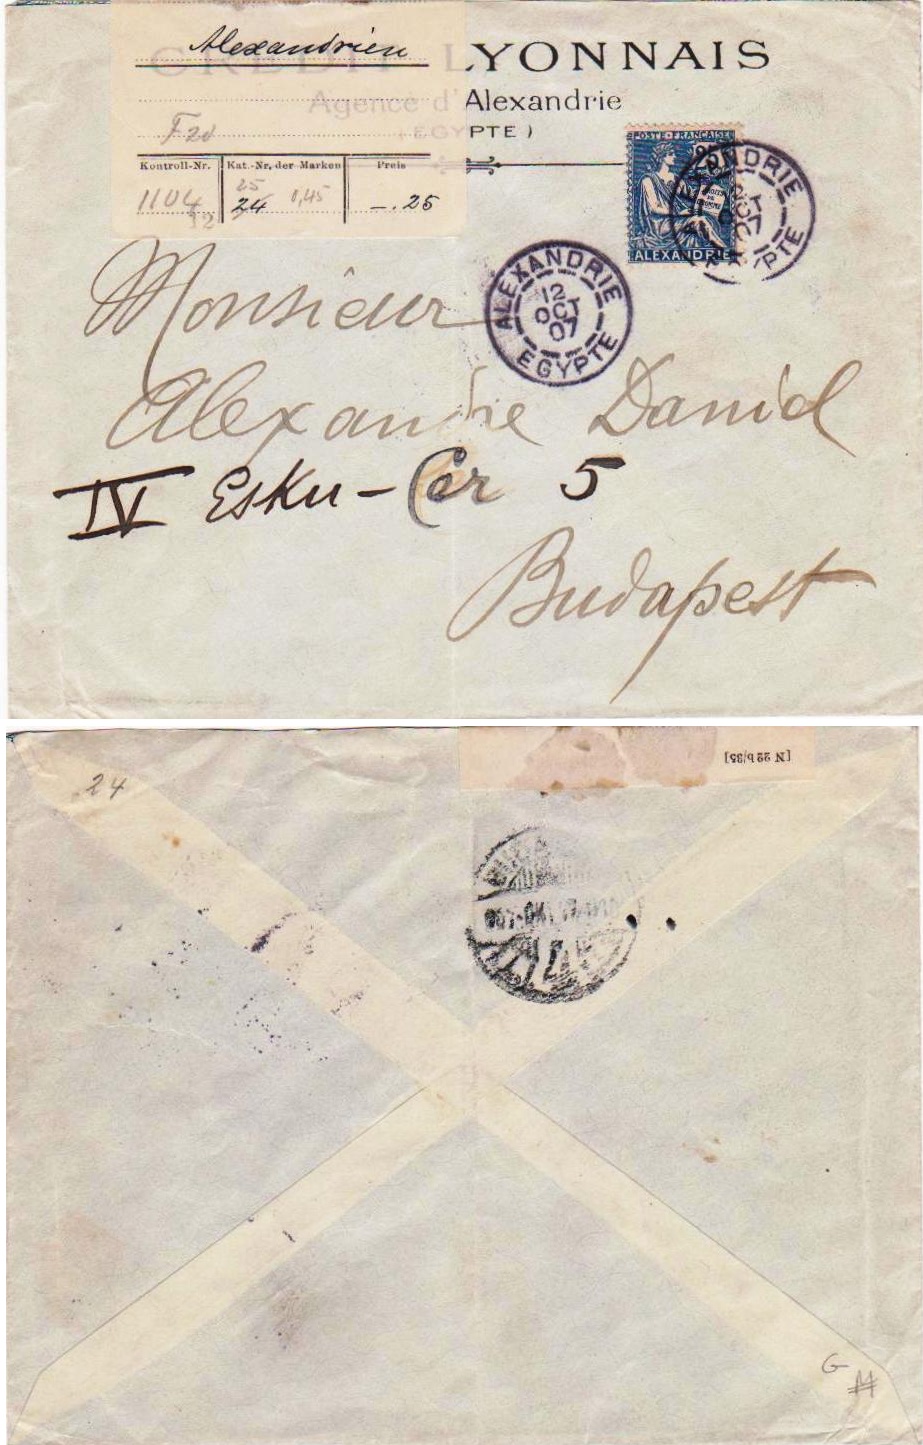 Alexandrien
CREDIT LYONNAIS
Agence d'Alexandrie
(EGYPTE)
F 20
Kontroll-Nr. Kat.-Nr. der Marken Preis
1104 25 0,45
12 24 —.25
POSTE FRANÇAISE
25
DROITS DE L'HOMME
ALEXANDRIE
ALEXANDRIE
OCT
07
EGYPTE
ALEXANDRIE
12
OCT
07
EGYPTE
Monsieur
Alexandre Daniel
IV Esku-Cer 5
Budapest
24
[N 22 b/35]
G